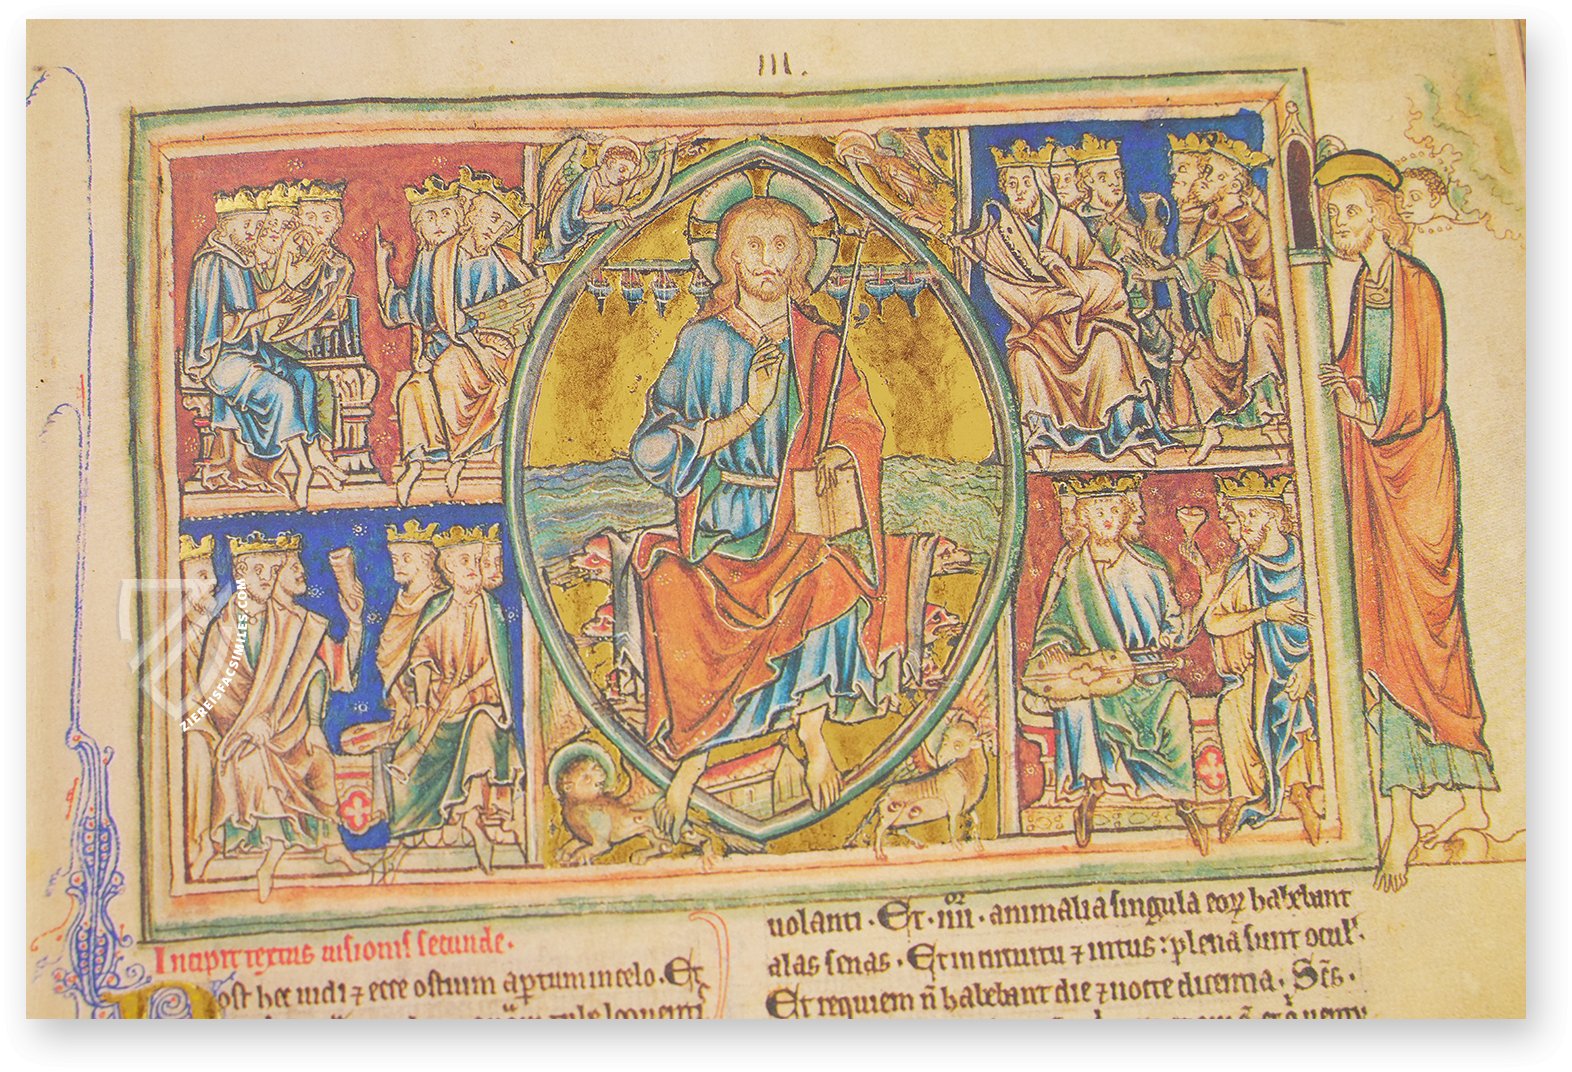 III.
ZIEREISFACSIMILES.COM
Incipit textus uisionis secunde.
Post hec uidi ⁊ ecce ostium aptum in celo. Et
uolanti. Et. iiiior. animalia singula eoꝝ habebant
alas senas. Et in circuitu ⁊ intus: plena sunt ocul'.
Et requiem n̄ habebant die ⁊ nocte dicentia. Sc̄s.